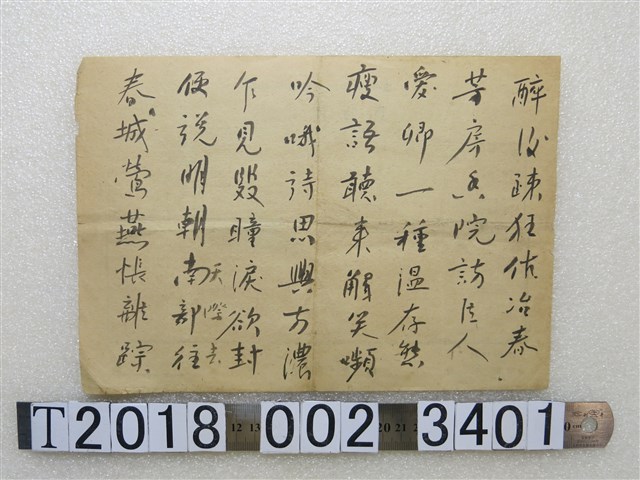 醉後疎狂佔冶春
芳房院訪佳人
愛卿一種溫存態
瘦語聽來解笑嚬
吟哦詩思興方濃
乍見雙瞳淚欲封
便說明朝南部往
天際去
春城鶯燕悵離踪
T2018 002 3401
12 13 20 21